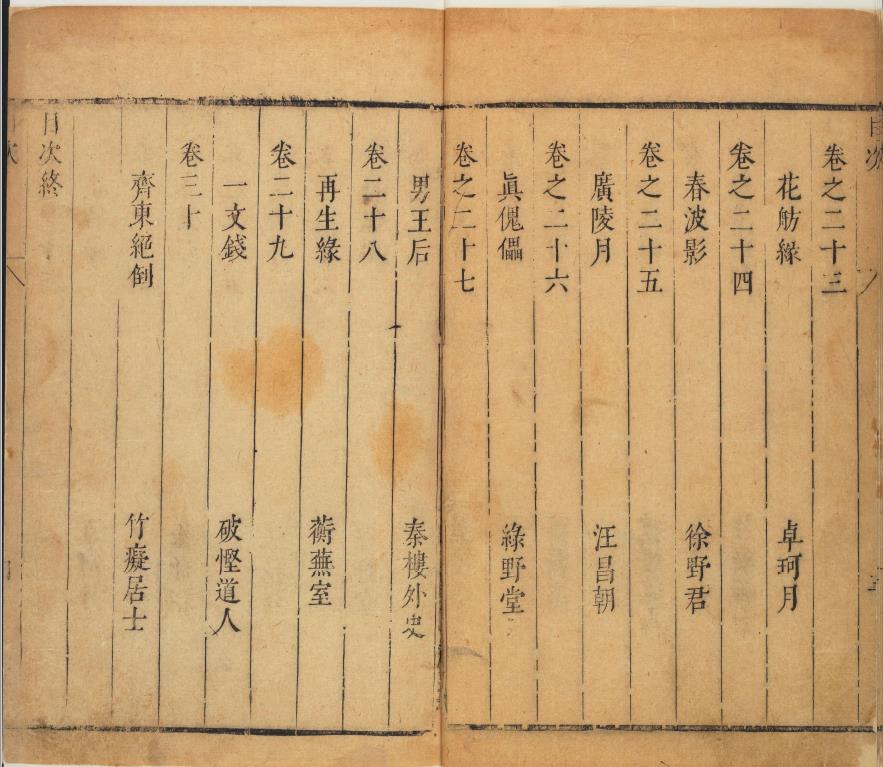 目次
卷之二十三
花舫緣 卓珂月
卷之二十四
春波影 徐野君
卷之二十五
廣陵月 汪昌朝
卷之二十六
眞傀儡 綠野堂
卷之二十七
男王后 秦樓外史
卷二十八
再生緣 蘅蕪室
卷二十九
一文錢 破慳道人
卷三十
齊東絕倒 竹癡居士
目次終